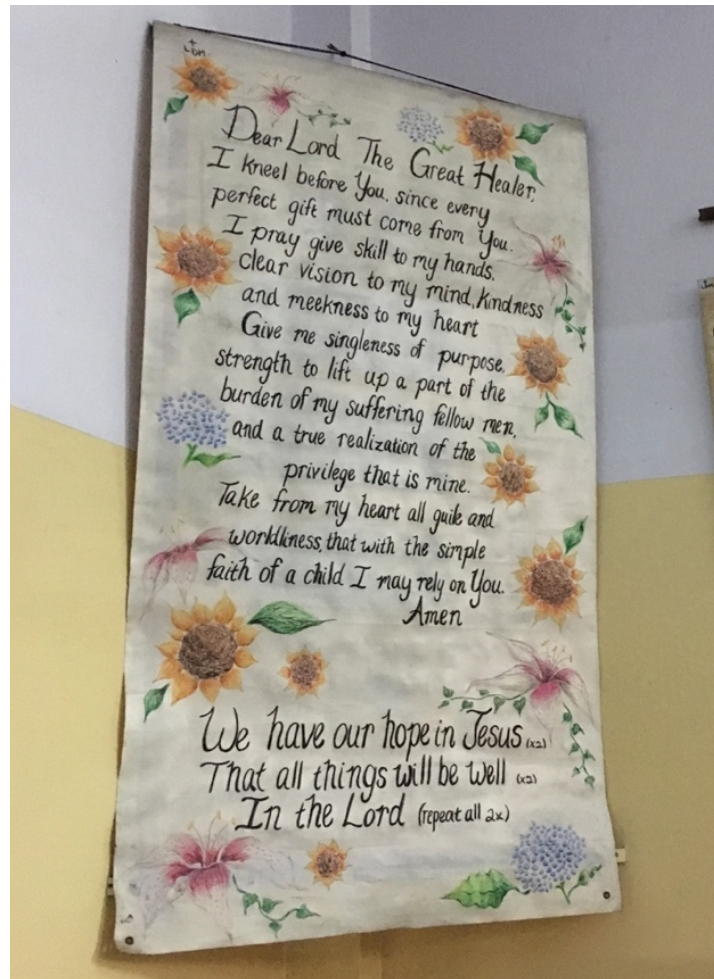 Dear Lord The Great Healer,
I kneel before You, since every
perfect gift must come from You.
I pray give skill to my hands,
clear vision to my mind, kindness
and meekness to my heart
Give me singleness of purpose,
strength to lift up a part of the
burden of my suffering fellow men,
and a true realization of the
privilege that is mine.
Take from my heart all guile and
worldliness, that with the simple
faith of a child I may rely on You.
Amen
We have our hope in Jesus (x2)
That all things will be well (x2)
In the Lord (repeat all 2x)